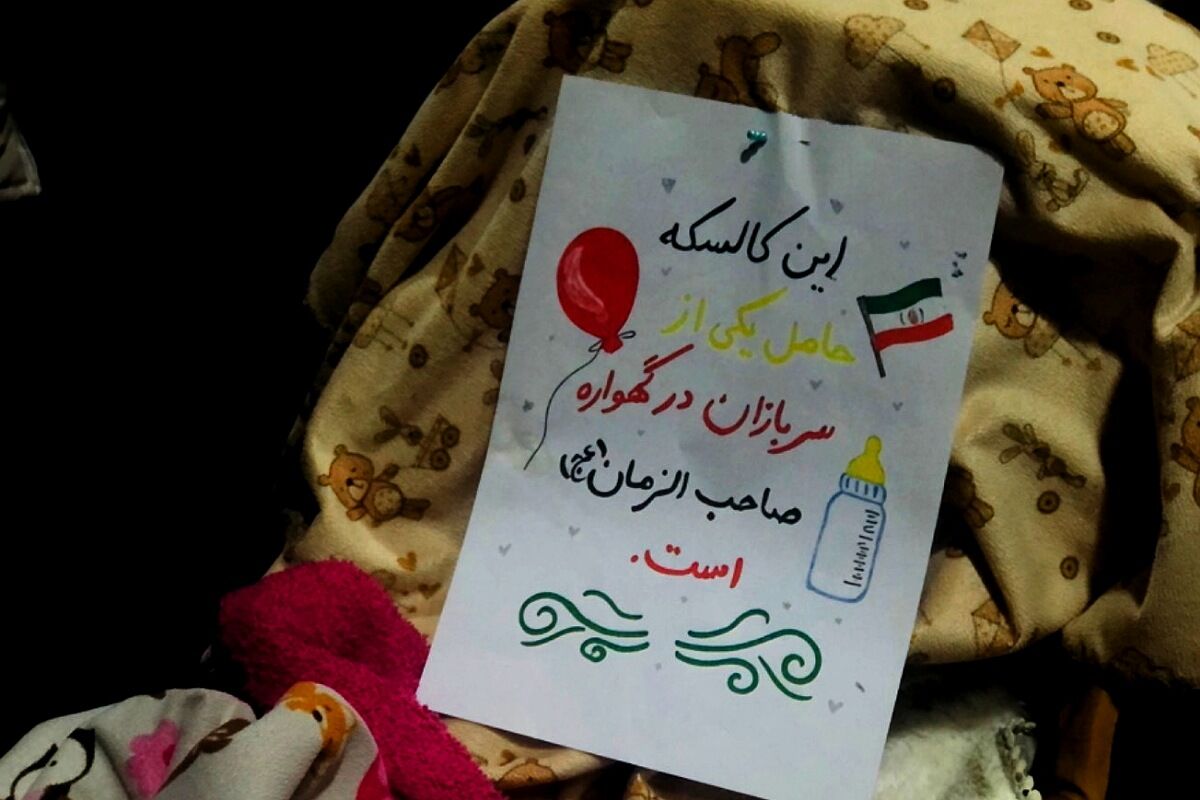 این کالسکه
حامل یکی از
سربازان در گهواره
صاحب الزمان (عج)
است.